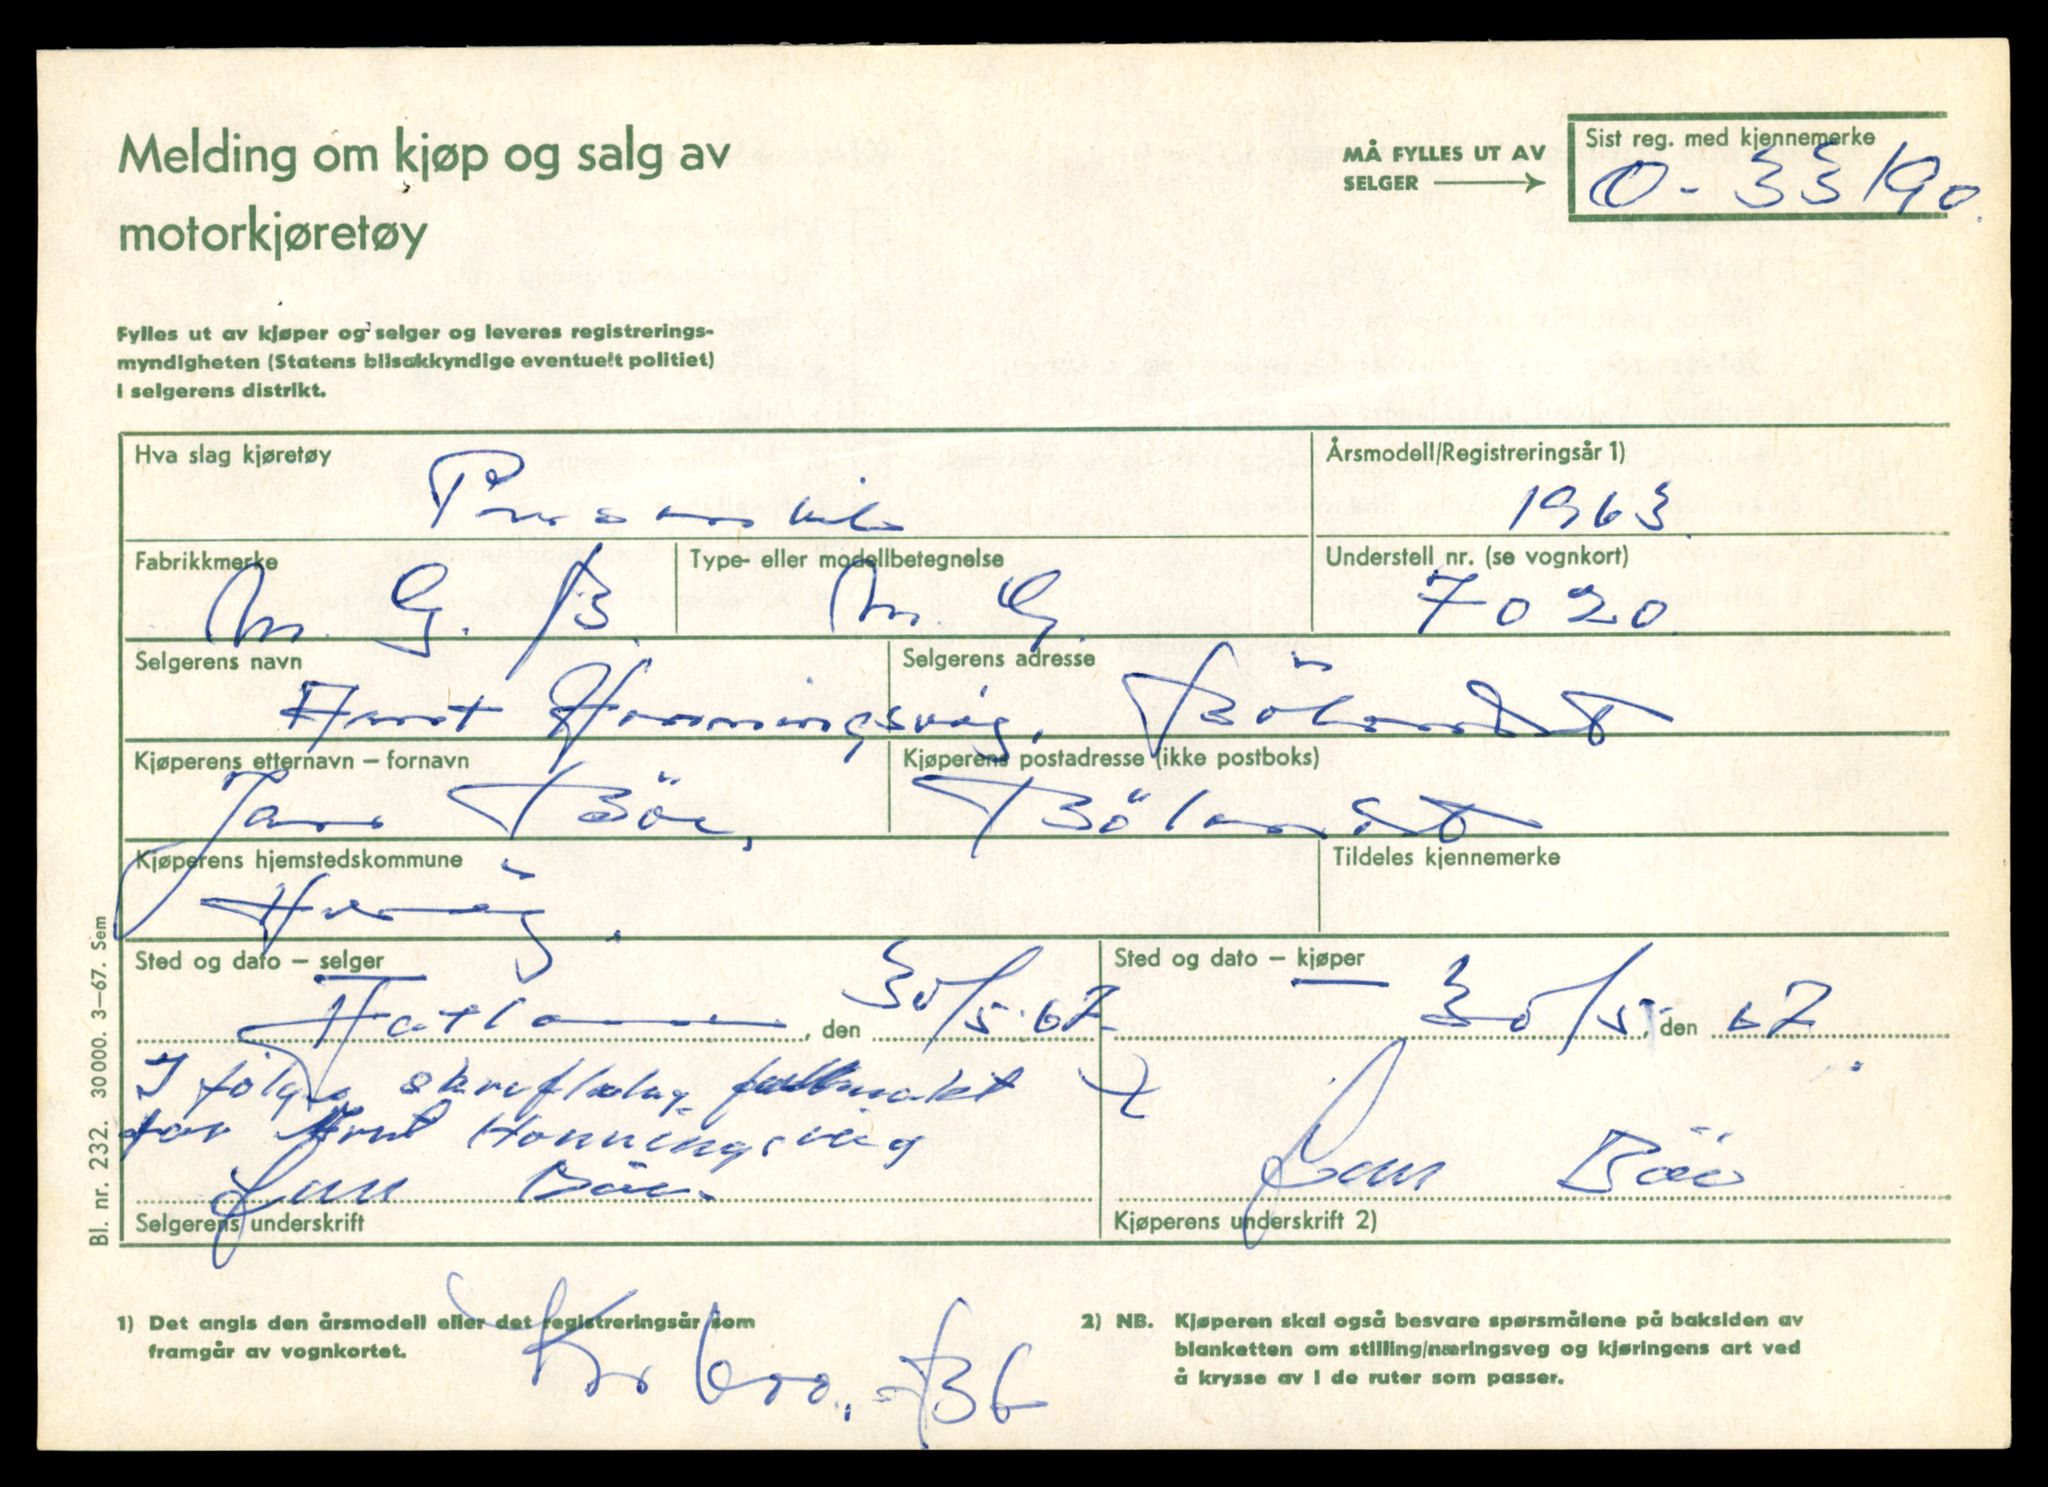 Melding om kjøp og salg av
motorkjøretøy
MÅ FYLLES UT AV
SELGER
Sist reg. med kjennemerke
O - 33190.
Fylles ut av kjøper og selger og leveres registrerings-
myndigheten (Statens bilsakkyndige eventuelt politiet)
i selgerens distrikt.
Hva slag kjøretøy
Personbil
Årsmodell/Registreringsår 1)
1963
Fabrikkmerke
M. G. B.
Type- eller modellbetegnelse
M. G.
Understell nr. (se vognkort)
7020
Selgerens navn
Arnt Honningsvåg,
Selgerens adresse
Kjøperens etternavn – fornavn
Jan Böe,
Kjøperens postadresse (ikke postboks)
Kjøperens hjemstedskommune
Tildeles kjennemerke
Sted og dato – selger
, den 30/5.67
Sted og dato – kjøper
— 30/5, den 67
I følge fullmakt
for Arnt Honningsvåg
Jan Böe.
Selgerens underskrift
Jan Böe
Kjøperens underskrift 2)
Bl. nr. 232. 30000. 3–67. Sem
1) Det angis den årsmodell eller det registreringsår som
framgår av vognkortet.
2) NB. Kjøperen skal også besvare spørsmålene på baksiden av
blanketten om stilling/næringsveg og kjøringens art ved
å krysse av i de ruter som passer.